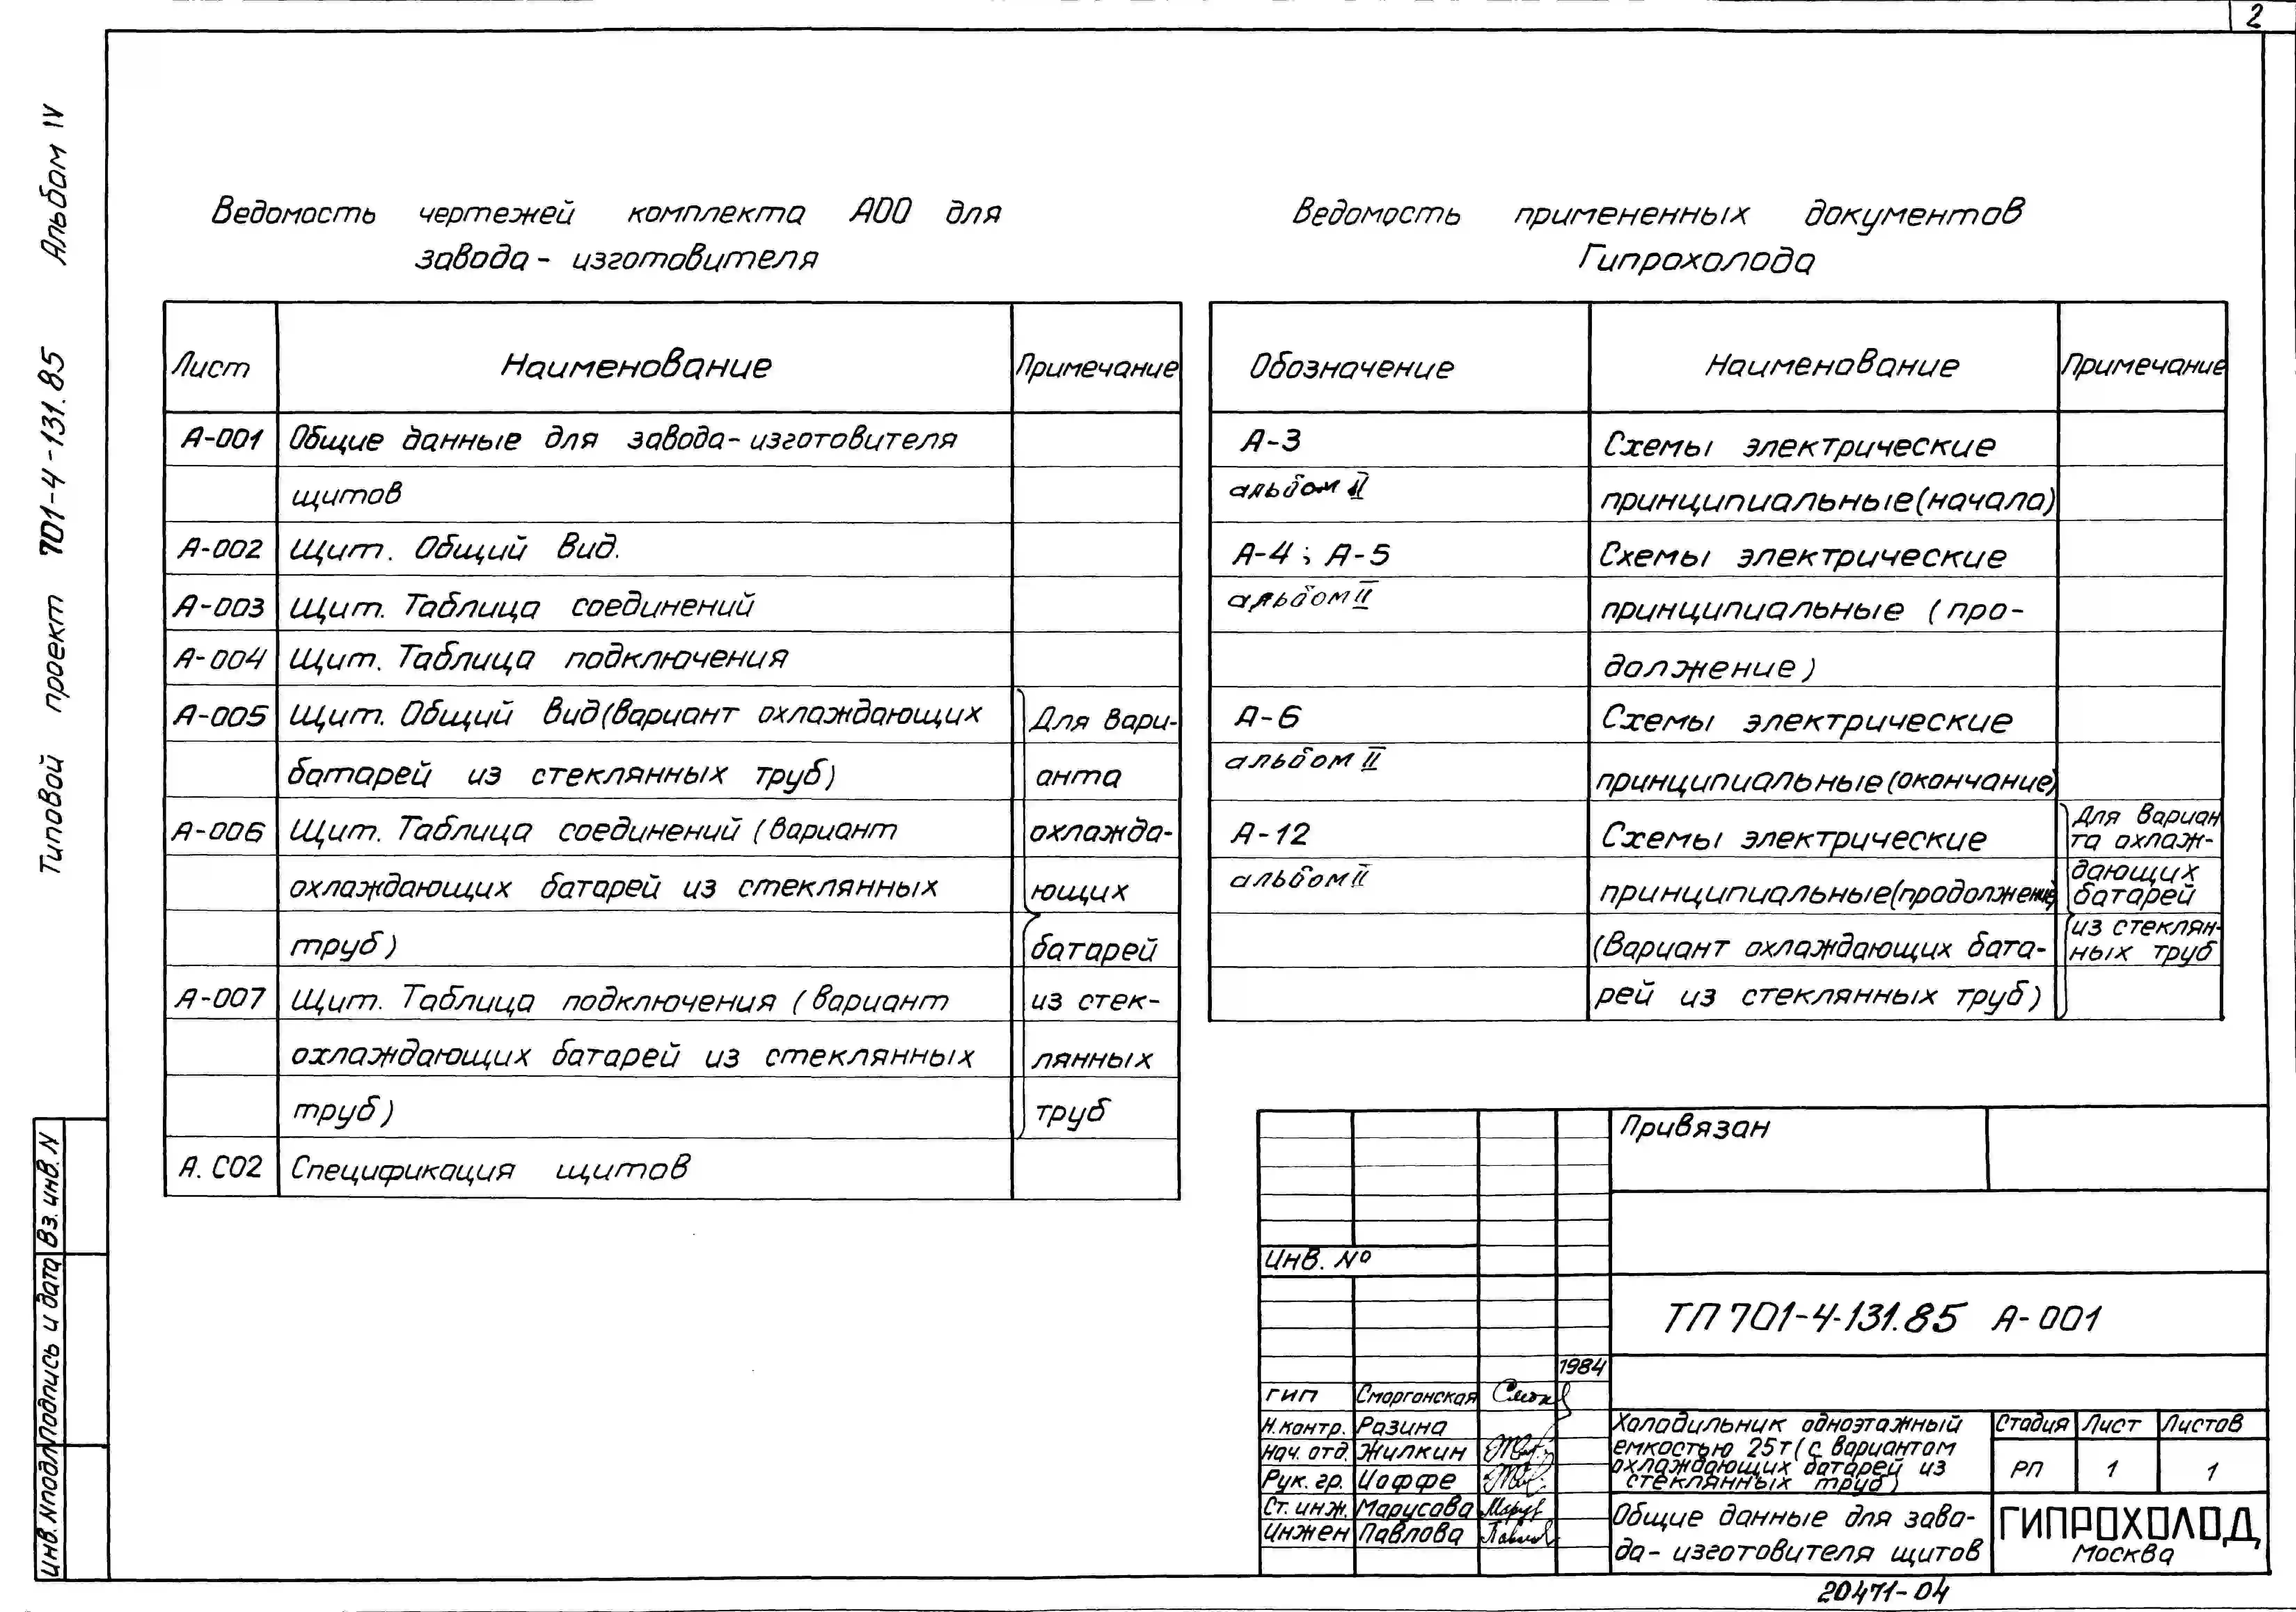 2
Альбом IV
Типовой проект 701-4-131.85
Ведомость чертежей комплекта А00 для
завода- изготовителя
Лист Наименование Примечание
А-001 Общие данные для завода-изготовителя
щитов
А-002 Щит. Общий вид.
А-003 Щит. Таблица соединений
А-004 Щит. Таблица подключения
А-005 Щит. Общий вид(вариант охлаждающих Для вари-
батарей из стеклянных труб) анта
А-006 Щит. Таблица соединений (вариант охлажда-
охлаждающих батарей из стеклянных ющих
труб) батарей
А-007 Щит. Таблица подключения (вариант из стек-
охлаждающих батарей из стеклянных лянных
труб) труб
А.С02 Спецификация щитов
Ведомость примененных документов
Гипрохолода
Обозначение Наименование Примечание
А-3 Схемы электрические
альбом II принципиальные(начало)
А-4; А-5 Схемы электрические
альбом II принципиальные (про-
должение)
А-6 Схемы электрические
альбом II принципиальные(окончание)
А-12 Схемы электрические
альбом II принципиальные(продолжение)
(Вариант охлаждающих бата-
рей из стеклянных труб)
Для вариан
та охлаж-
дающих
батарей
из стеклян-
ных труб
Привязан
Инв. №
ТП 701-4-131.85 А-001
1984
ГИП Сморгонская
Н.контр. Разина
Нач. отд. Жилкин
Рук. гр. Иоффе
Ст. инж. Марусова
Инжен Павлова
Холодильник одноэтажный
емкостью 25т(с вариантом
охлаждающих батарей из
стеклянных труб)
Стадия Лист Листов
РП 1 1
Общие данные для заво-
да- изготовителя щитов
ГИПРОХОЛОД
Москва
20471-04
Инв. N подл Подпись и дата Вз. инв. N